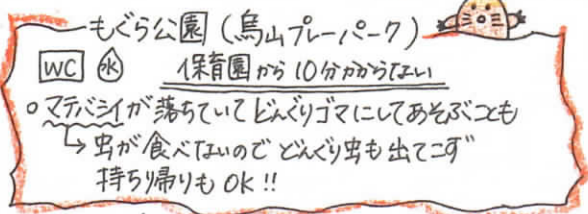 もぐら公園(烏山プレーパーク)
WC 水 保育園から10分かからない
○マテバシイが落ちていてどんぐりゴマにしてあそぶことも
↳虫が食べないのでどんぐり虫も出てこず
持ち帰りもOK!!